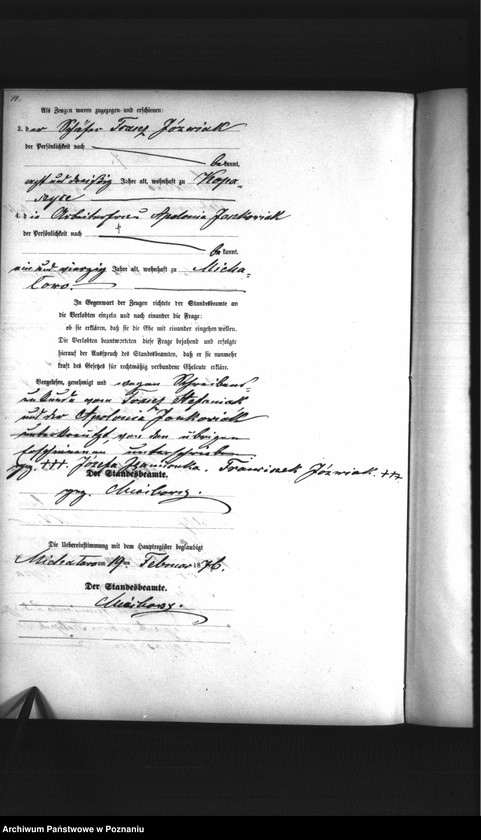 Als Zeugen waren zugezogen und erschienen:
3. der Schäfer Franz Józwiak
der Persönlichkeit nach
bekannt,
acht und dreißig Jahre alt, wohnhaft zu Kopa-
szyce
4. die Arbeiterfrau Apolonia Jankowiak
der Persönlichkeit nach
bekannt,
ein und vierzig Jahre alt, wohnhaft zu Micha-
lowo.
In Gegenwart der Zeugen richtete der Standesbeamte an
die Verlobten einzeln und nach einander die Frage:
ob sie erklären, daß sie die Ehe mit einander eingehen wollen.
Die Verlobten beantworteten diese Frage bejahend und erfolgte
hierauf der Ausspruch des Standesbeamten, daß er sie nunmehr
kraft des Gesetzes für rechtmäßig verbundene Eheleute erkläre.
Vorgelesen, genehmigt und wegen Schreibens-
unkunde vom Franz Stefaniak
und der Apolonia Jankowiak
unterkreuzt, von den übrigen
Erschienenen unterschrieben.
gez. +++. Józefa . Franciszek Józwiak. +++
Der Standesbeamte.
gez.
Die Uebereinstimmung mit dem Hauptregister beglaubigt
am 19ten Februar 1876.
Der Standesbeamte.
Archiwum Państwowe w Poznaniu